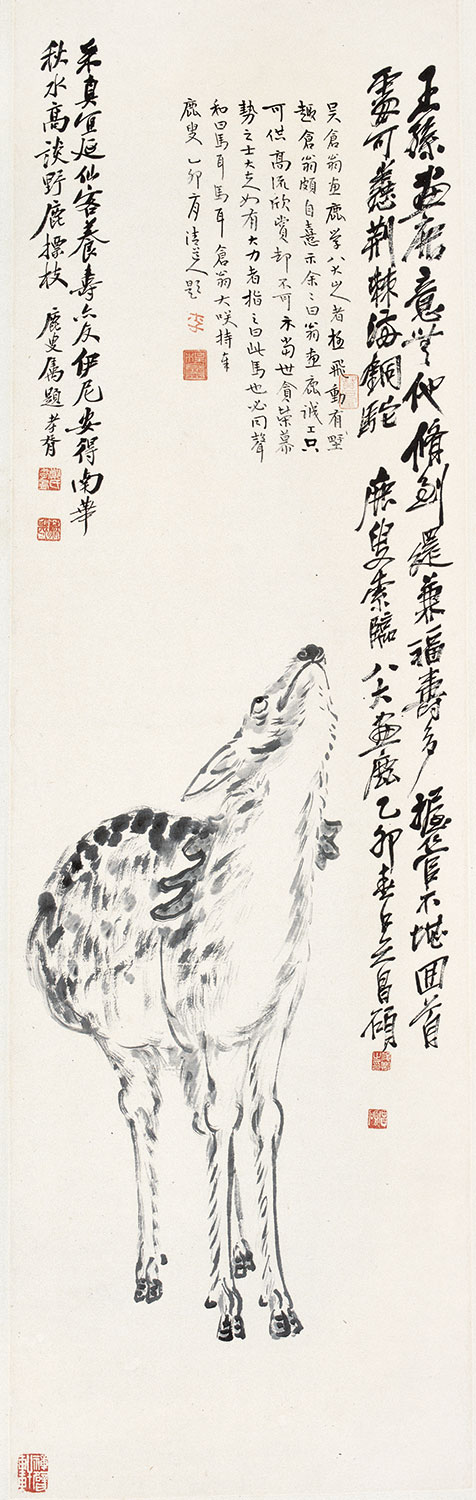 王孫畫鹿意無他脩到還兼福壽多握管不堪回首
處可無荊棘海銅駝 鹿叟索臨八大畫鹿乙卯春日吳昌碩
吳倉翁畫鹿學八大山人者極飛動有野
趣倉翁頗自憙示余余曰翁畫鹿誠工只
可供高流欣賞卻不可示當世貪榮慕
勢之士大夫如有大力者指之曰此馬也必同聲
和曰馬耳馬耳倉翁大咲持奉
鹿叟 乙卯 清道人題
采真宜延仙客養壽亦友伊尼安得南華
秋水高談野鹿摽枝 鹿叟屬題孝胥